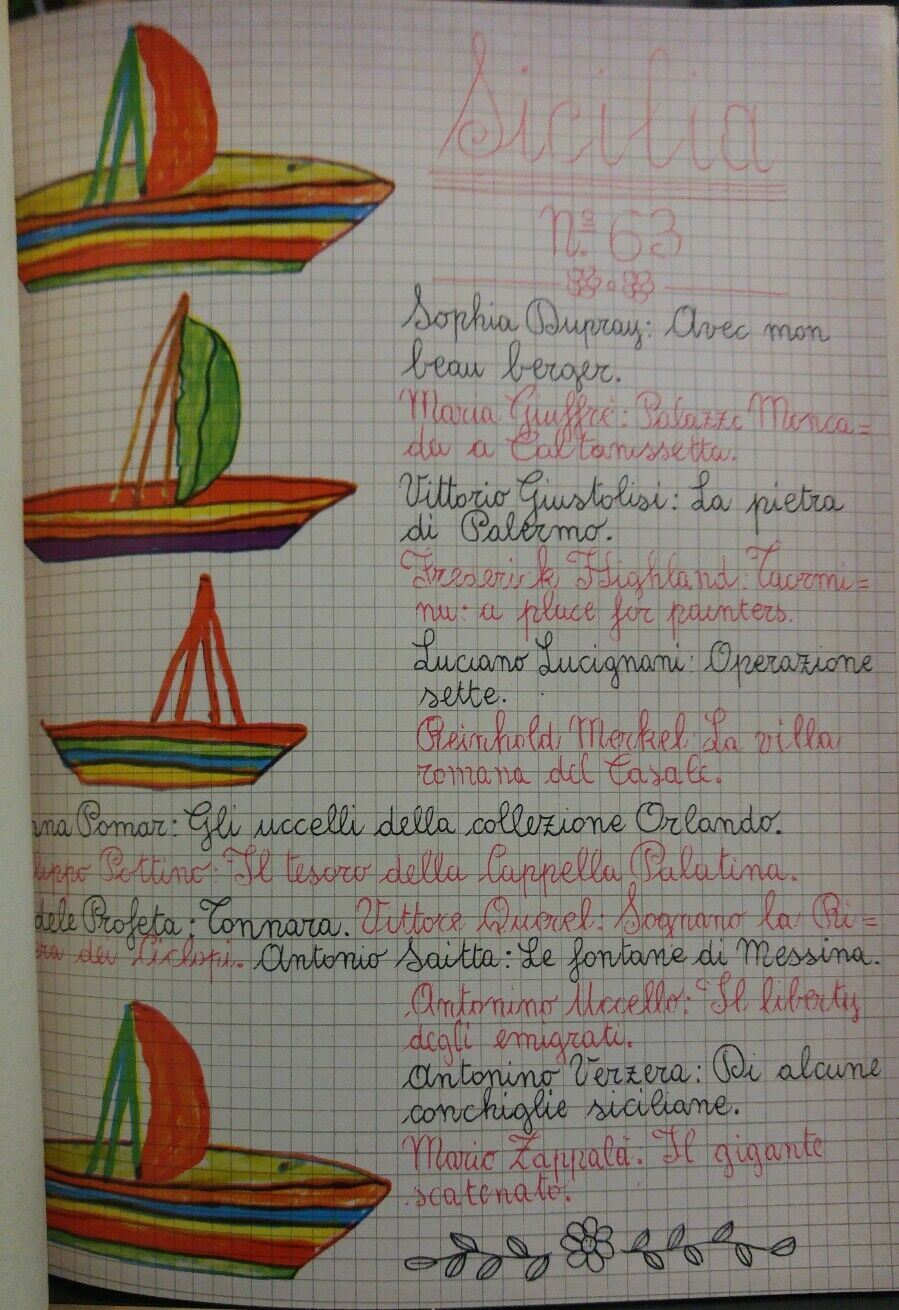 Sicilia
nº 63
Sophia Dupray: Avec mon
beau berger.
Maria Giuffrè: Palazzo Monca=
da a Caltanissetta.
Vittorio Giustolisi: La pietra
di Palermo.
Freserick Highland: Taormi=
na: a place for painters.
Luciano Lucignani: Operazione
sette.
Reinhold Merkel: La villa
romana del Casale.
nna Pomar: Gli uccelli della collezione Orlando.
lippo Pottino: Il tesoro della Cappella Palatina.
dele Profeta: Tonnara. Vittore Querel: Sognano la Ri=
era dei Ciclopi. Antonio Saitta: Le fontane di Messina.
Antonino Uccello: Il liberty
degli emigrati.
Antonino Verzera: Di alcune
conchiglie siciliane.
Mario Zappalà: Il gigante
scatenato.